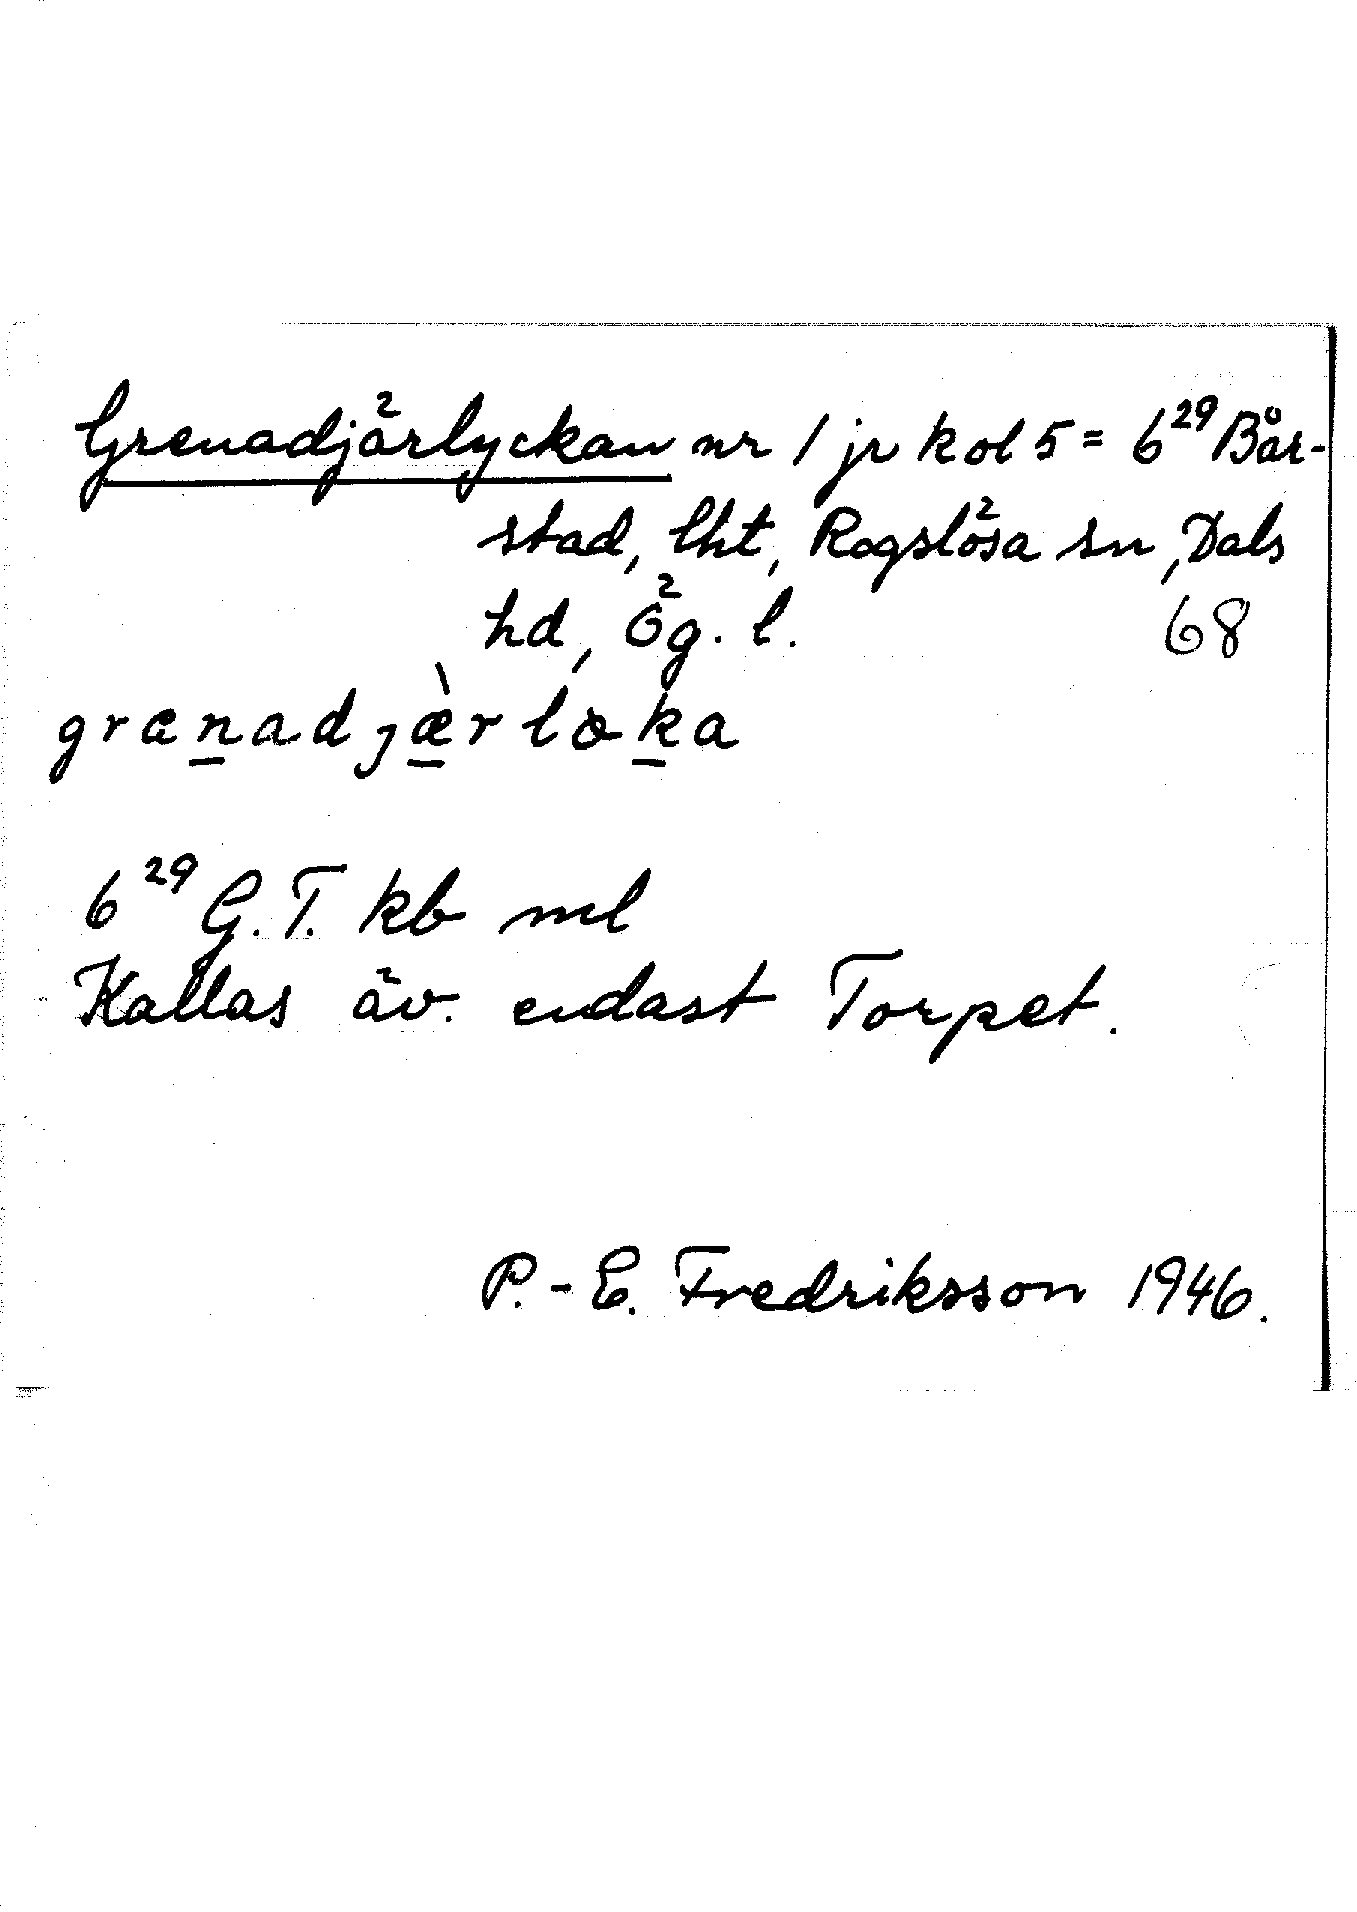 Grenadjärlyckan nr 1 jr kol 5 = 6²⁹ Bår-
stad, lht, Rogslösa sn, Dals
hd, Ög. l. 68
grænadjæ̀rlɷka
6²⁹ G.T. kb ml
Kallas äv. endast Torpet.
P.-E. Fredriksson 1946.